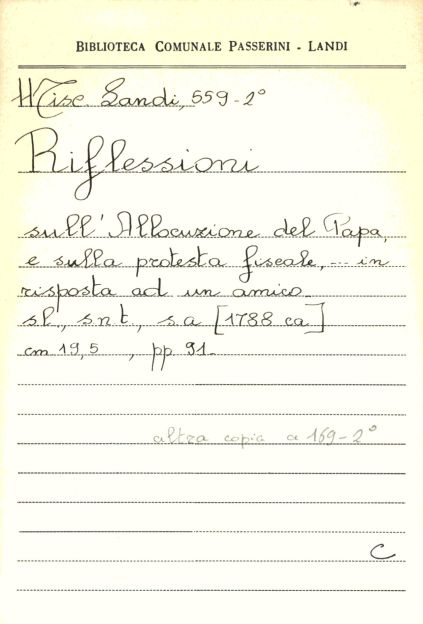 BIBLIOTECA COMUNALE PASSERINI - LANDI
Misc. Landi, 559-2°
Riflessioni
sull'Allocuzione del Papa,
e sulla protesta fiscale, ... in
risposta ad un amico
s.l., s.n.t., s.a [1788 ca]
cm 19,5 , pp 91.
altra copia a 169-2°
C